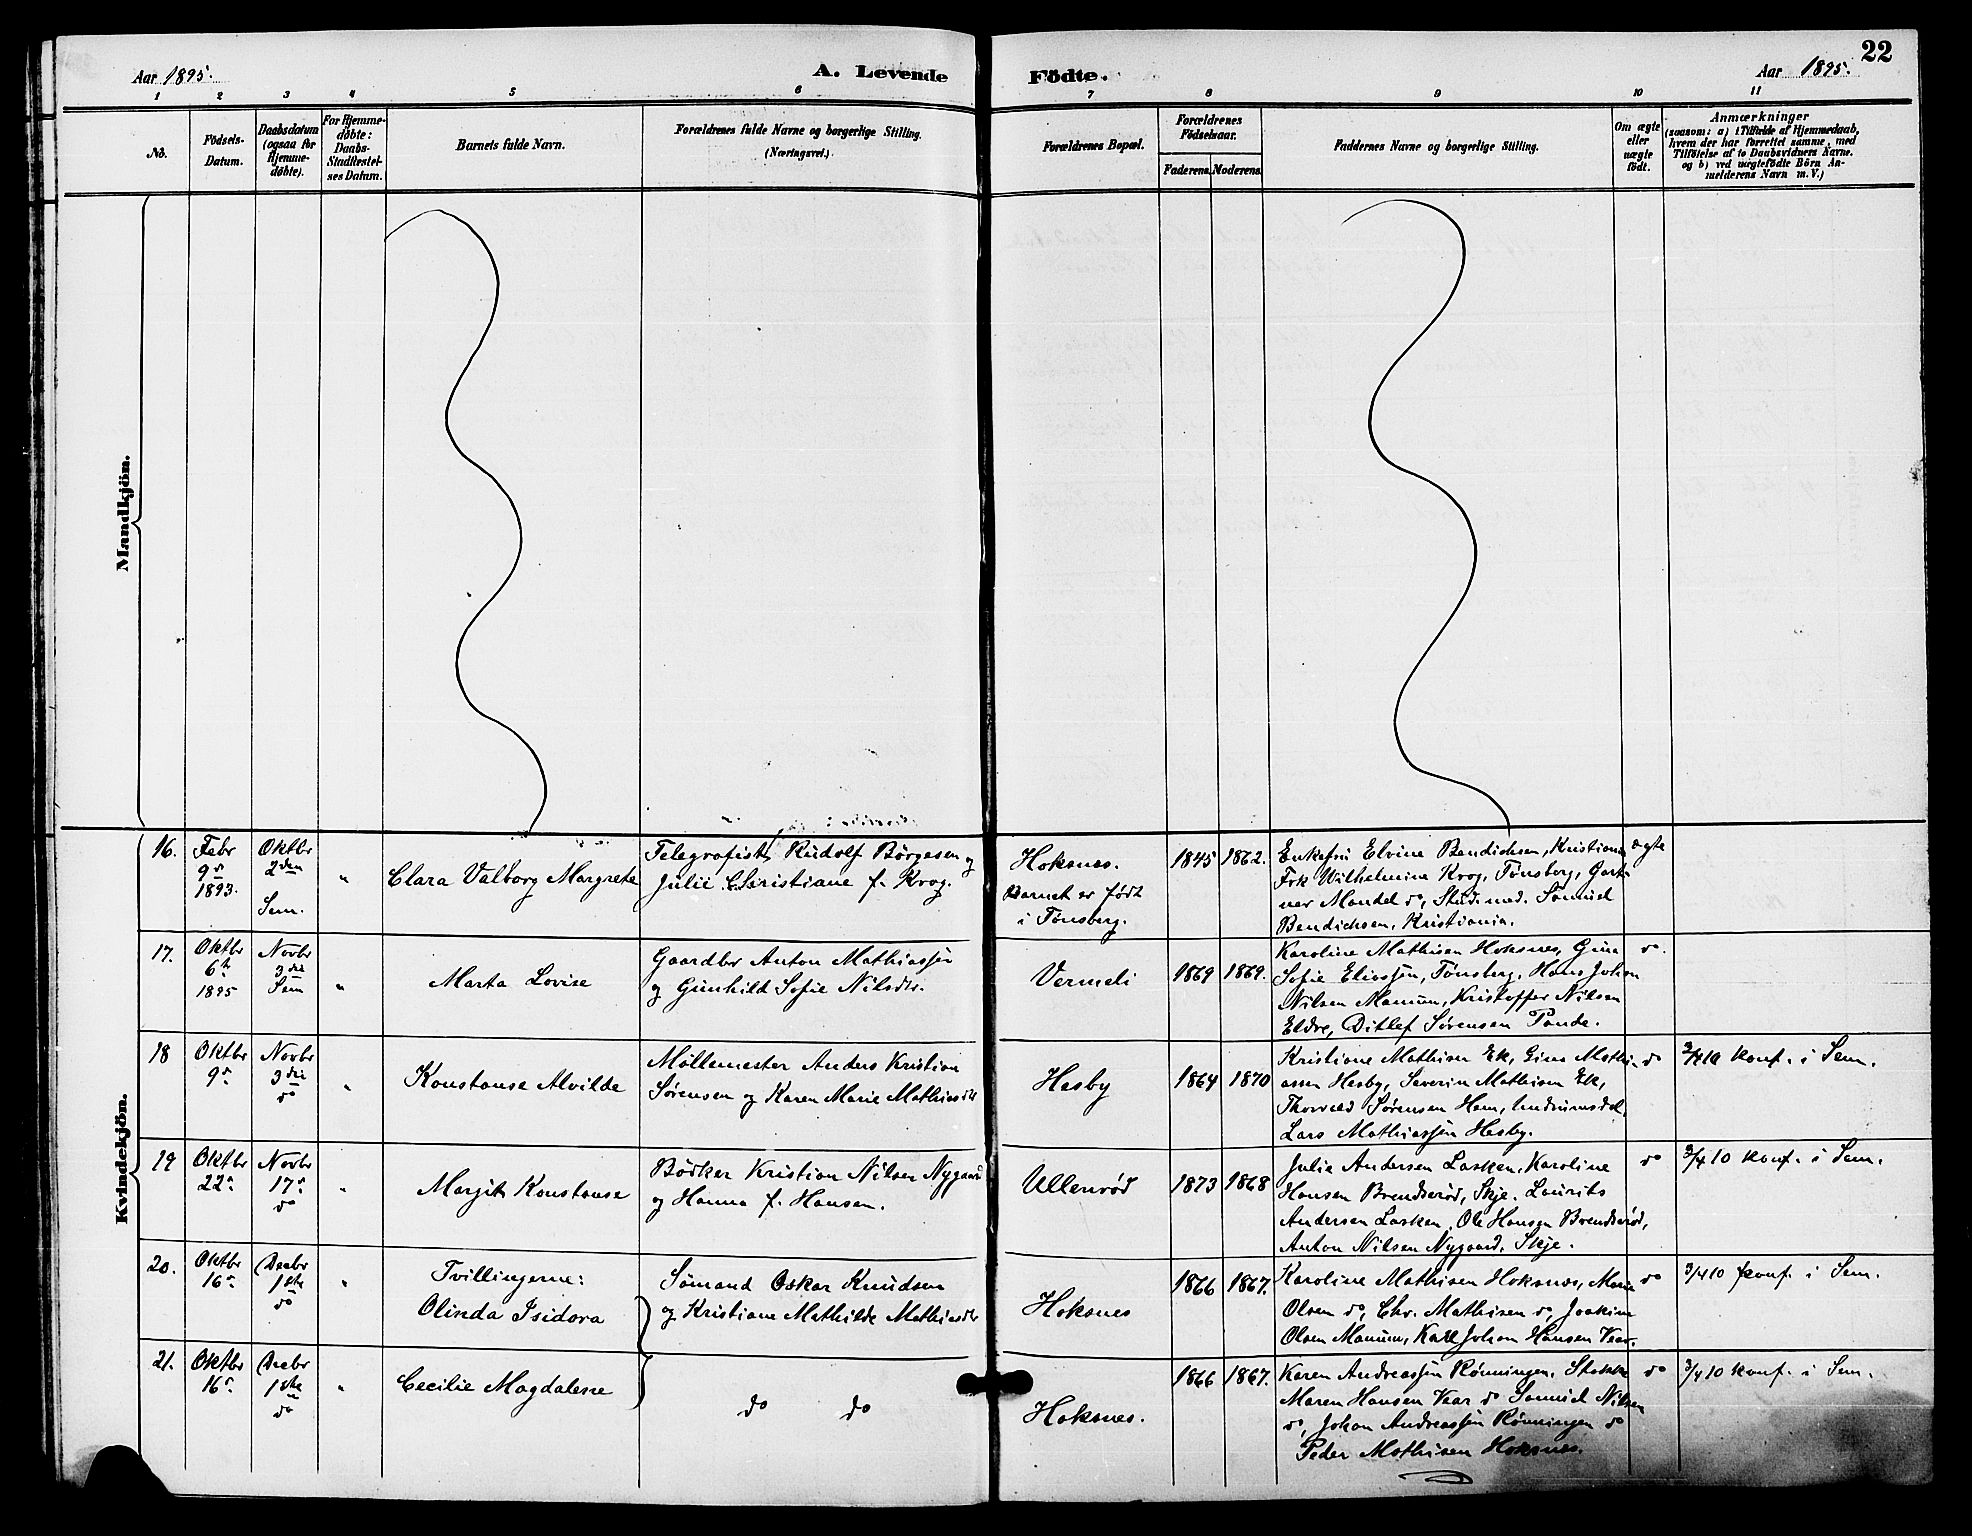 Aar 1895.
A. Levende Födte.
Aar 1895.
22
1 2 3 4 5 6 7 8 9 10 11
No.
Födsels-
Datum.
Daabsdatum
(ogsaa for
Hjemme-
døbte).
For Hjemme-
døbte:
Daabs-
Stadfæstel-
ses Datum.
Barnets fulde Navn.
Forældrenes fulde Navne og borgerlige Stilling.
(Næringsvei.)
Forældrenes Bopæl.
Forældrenes
Födselsaar.
Faderens. Moderens.
Faddernes Navne og borgerlige Stilling.
Om ægte
eller
uægte
født.
Anmærkninger
(saasom: a) i Tilfælde af Hjemmedaab,
hvem der har forrettet samme, med
Tilföielse af to Daabsvidners Navne.
og b) ved uægtefödte Börn An-
melderens Navn m. V.)
Mandkjön.
Kvindekjön.
16.
Febr
9de
1893.
Oktbr
2den
Sem.
"
Clara Valborg Margrete
Telegrafist Rudolf Börgesen og
Julie Christiane f. Krog.
Hoksnes.
Barnet er født
i Tønsberg.
1845 1862.
Enkefru Elvine Bendichsen, Kristiania
Frk Wilhelmine Krog, Tønsberg, Gart-
ner Mandel do, Stud. med. Samuel
Bendichsen, Kristiania.
ægte
17.
Oktbr
6te
1895
Novbr
3die
Sem
"
Marta Lovise
Gaardbr Anton Mathiassen
og Gunhild Sofie Nilsdtr.
Vermeli
1869 1869.
Karoline Mathisen Hoksnes, Gina
Sofie Eliassen, Tønsberg, Hans Johan
Nilsen Manum, Kristoffer Nilsen
Eldre, Ditlef Sørensen Tande.
do.
18
Oktbr
9de
Novbr
3die
do
"
Konstanse Alvilde
Møllemester Anders Kristian
Sørensen og Karen Marie Mathiasdtr
Hesby
1864 1870
Kristiane Mathisen Ek, Gina Mathi-
assen Hesby, Severin Mathisen Ek,
Thorvald Sørensen Hem,
Lars Mathiassen Hesby.
do
3/4 10 konf. i Sem.
19
Oktbr
22de
Novbr
17de
do
"
Margit Konstanse
Bödker Kristian Nilsen Nygaard
og Hanna f. Hansen.
Ullenrød
1873 1868
Julie Andersen Lasken, Karoline
Hansen Brendsrød, Skje. Laurits
Andersen Lasken, Ole Hansen Brendsrød,
Anton Nilsen Nygaard, Skje.
do
3/4 10 konf. i Sem.
20.
Oktbr
16de
Decbr
1ste
do
"
Tvillingerne:
Olinda Isidora
Sømand Oskar Knudsen
og Kristiane Mathilde Mathiasdtr
Hoksnes
1866 1867.
Karoline Mathisen Hoksnes, Marie
Olsen do, Chr. Mathisen do, Joakim
Olsen Manum, Karl Johan Hansen Vear.
do
3/4 10 konf. i Sem.
21.
Oktbr
16de
Decbr
1ste
do
"
Cecilie Magdalene
do do
Hoksnes.
1866 1867.
Karen Andreassen Rønningen, Stokke
Maren Hansen Vear do Samuel Nilsen
do, Johan Andreassen Rønningen do
Peder Mathisen Hoksnes.
do
3/4 10 konf. i Sem.